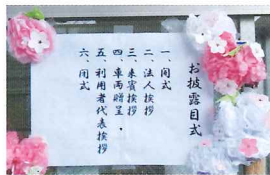 お披露目式
一、開式
二、法人挨拶
三、来賓挨拶
四、車両贈呈
五、利用者代表挨拶
六、閉式